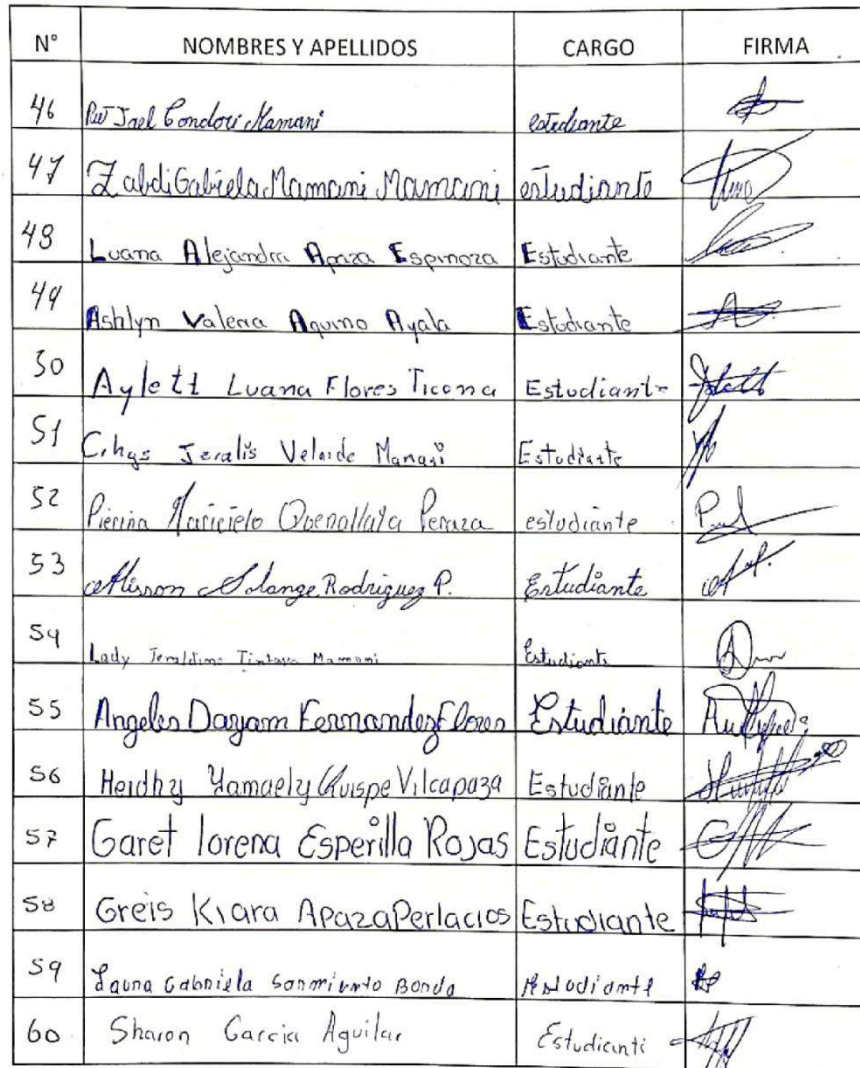 N° NOMBRES Y APELLIDOS CARGO FIRMA
46 Rut Jael Condori Mamani estudiante
47 Zabdi Gabriela Mamani Mamani estudiante
48 Luana Alejandra Apaza Espinoza Estudiante
49 Ashlyn Valeria Aquino Ayala Estudiante
50 Aylett Luana Flores Ticona Estudiante
51 Jeralis Velarde Mamani Estudiante
52 Pierina Maricielo Quenallata Peraza estudiante
53 Alisson Solange Rodriguez P. Estudiante
54 Lady Jeraldine Tintaya Mamani Estudiante
55 Angeles Dayam Fernandez Flores Estudiante
56 Heidhy Yamaely Quispe Vilcapaza Estudiante
57 Garet lorena Esperilla Rojas Estudiante
58 Greis Kiara Apaza Perlacios Estudiante
59 Gabriela Sarmiento Estudiante
60 Sharon Garcia Aguilar Estudiante